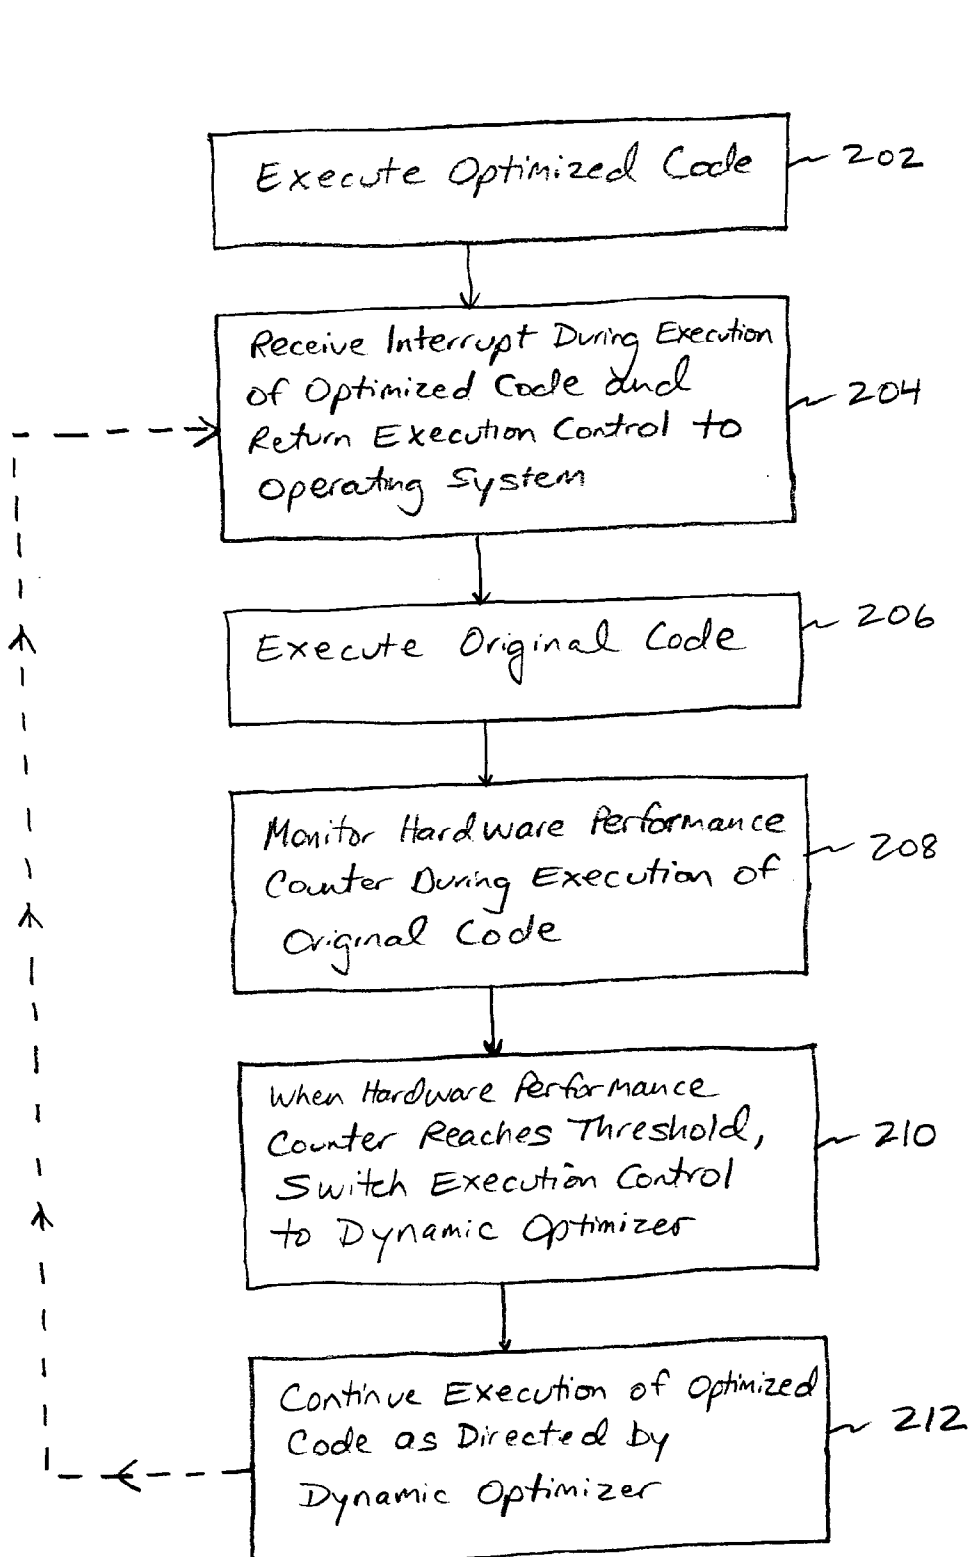 Execute Optimized Code
202
Receive Interrupt During Execution
of Optimized Code and
Return Execution Control to
Operating System
204
Execute Original Code
206
Monitor Hardware Performance
Counter During Execution of
Original Code
208
When Hardware Performance
Counter Reaches Threshold,
Switch Execution Control
to Dynamic Optimizer
210
Continue Execution of Optimized
Code as Directed by
Dynamic Optimizer
212